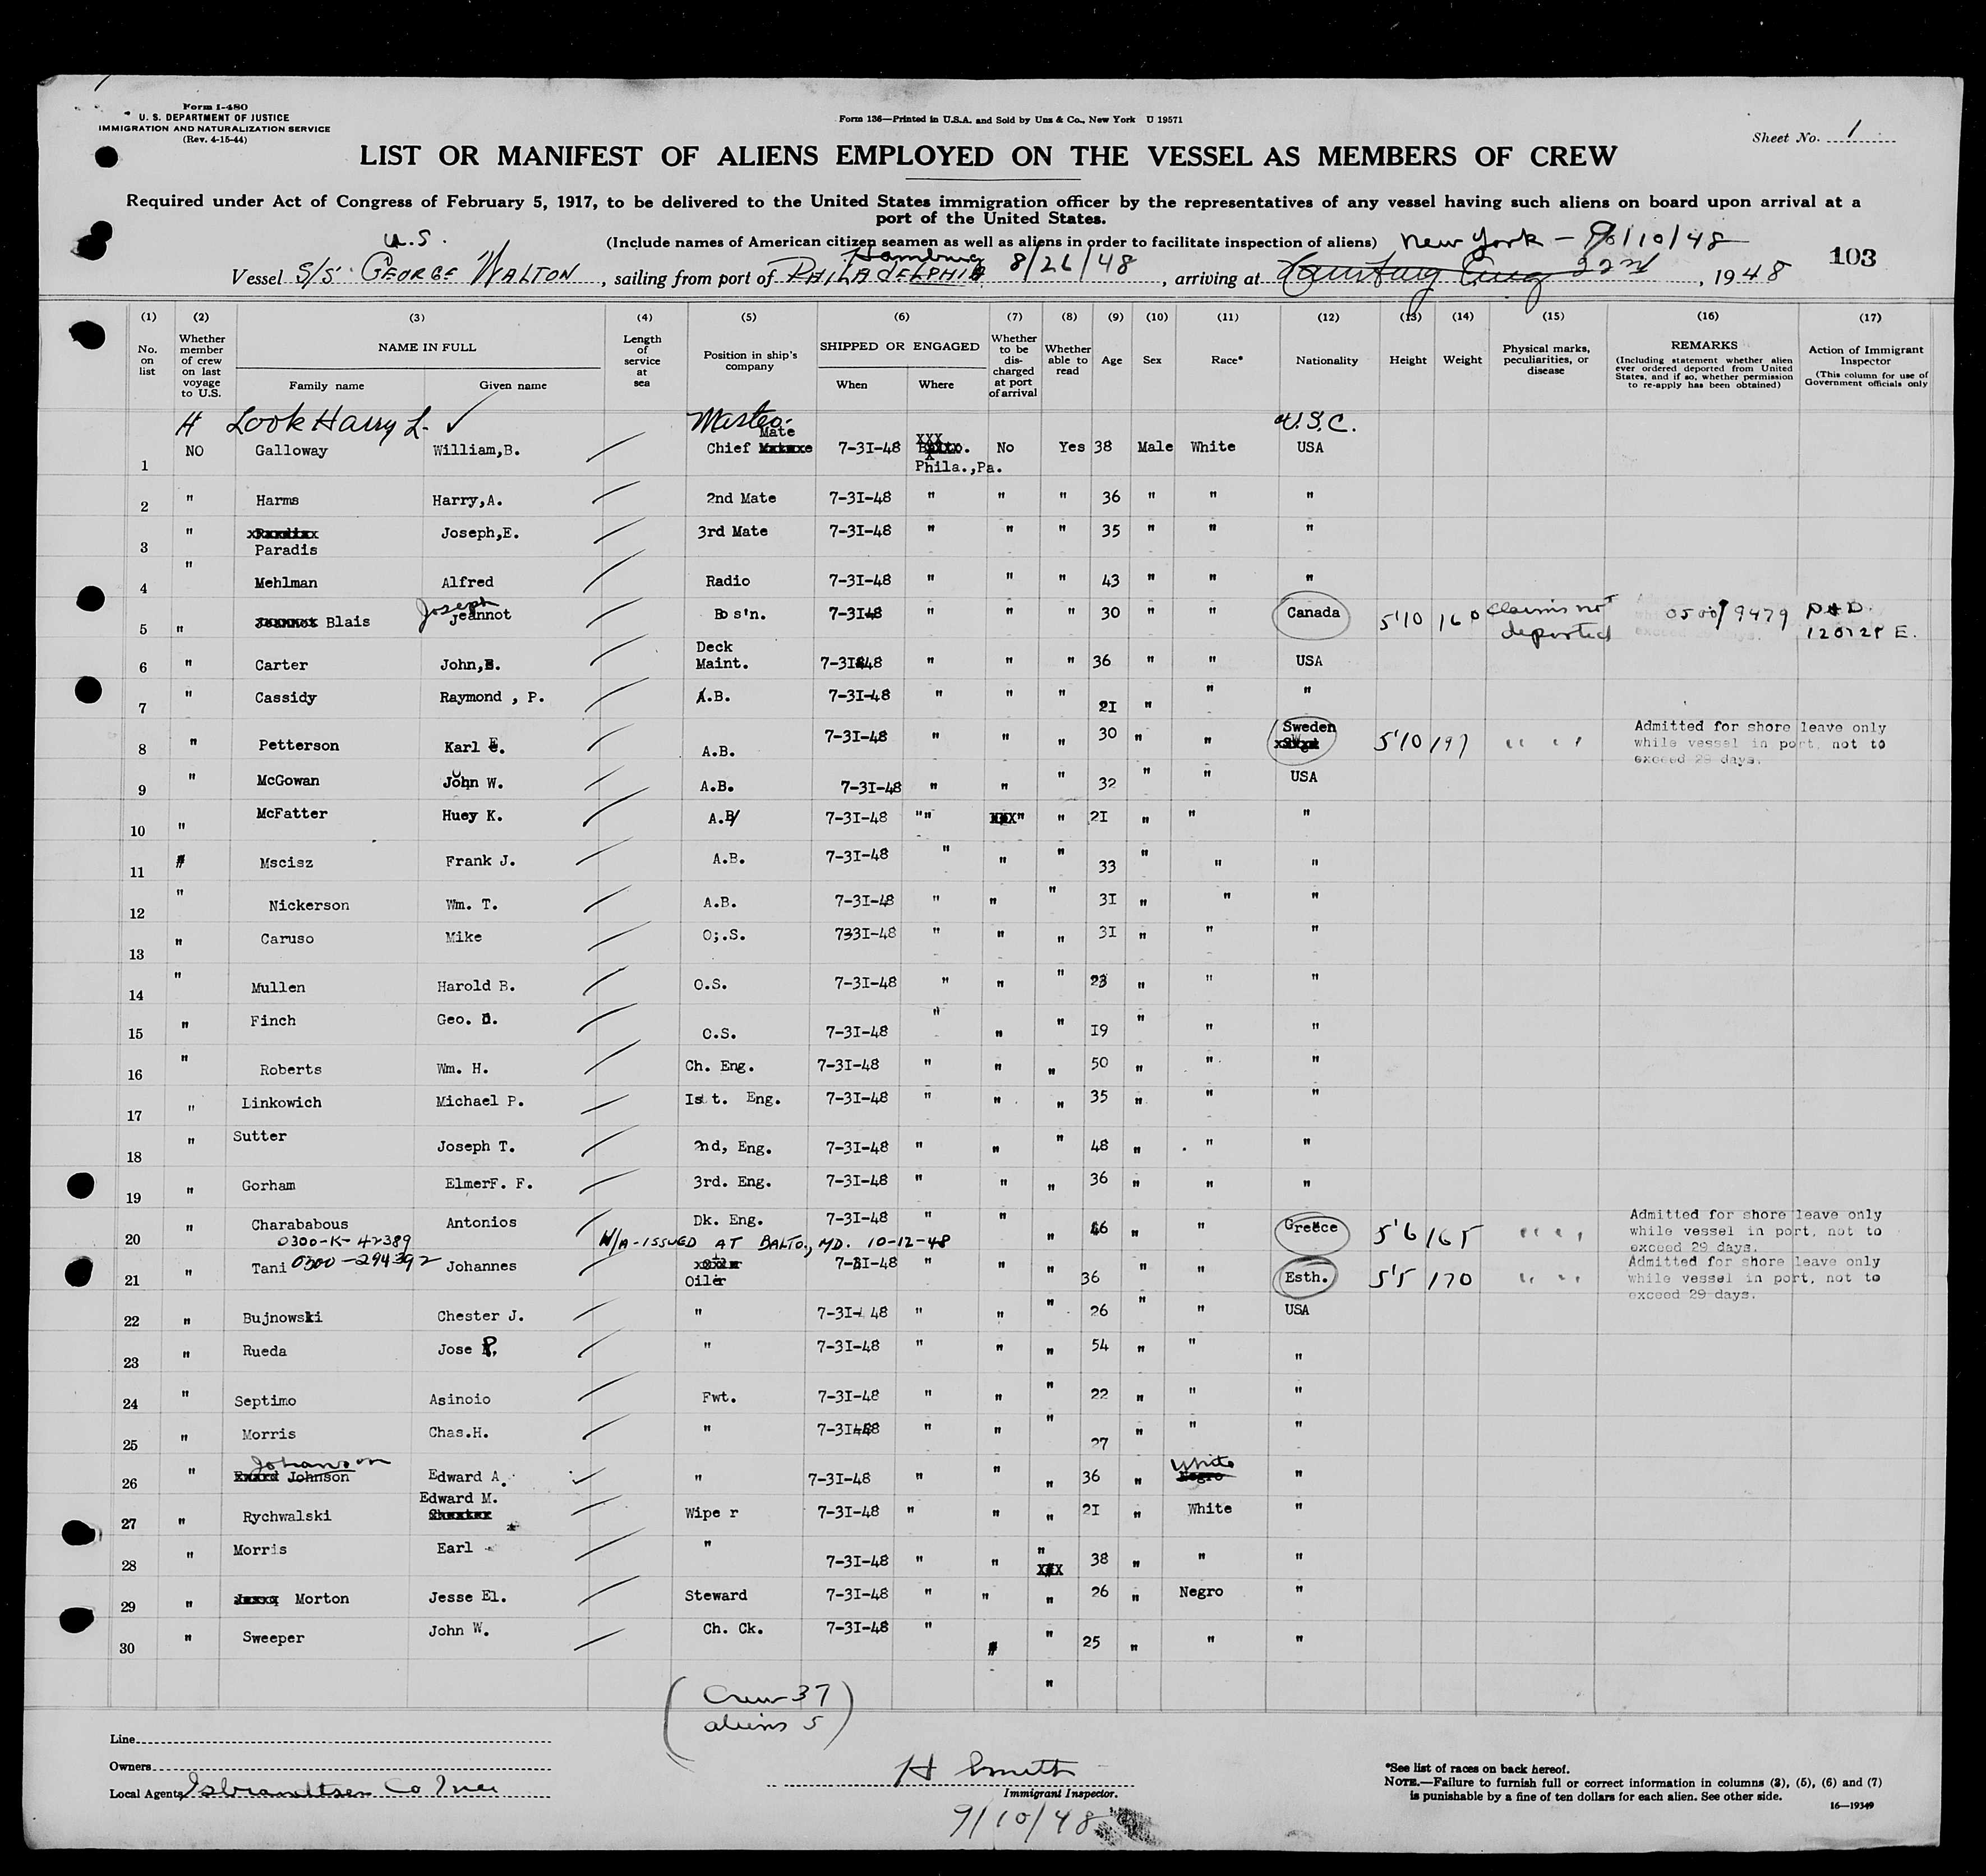 Form I-480
U. S. DEPARTMENT OF JUSTICE
IMMIGRATION AND NATURALIZATION SERVICE
(Rev. 4-15-44)
Form 136—Printed in U.S.A. and Sold by Unz & Co., New York U 19571
Sheet No. 1
LIST OR MANIFEST OF ALIENS EMPLOYED ON THE VESSEL AS MEMBERS OF CREW
Required under Act of Congress of February 5, 1917, to be delivered to the United States immigration officer by the representatives of any vessel having such aliens on board upon arrival at a
port of the United States.
(Include names of American citizen seamen as well as aliens in order to facilitate inspection of aliens) New York - 9/10/48
U.S. Hamburg 103
Vessel S/S GEORGE WALTON, sailing from port of PHILADELPHIA 8/26/48, arriving at Hamburg Aug 22nd, 1948
(1) (2) (3) (4) (5) (6) (7) (8) (9) (10) (11) (12) (13) (14) (15) (16) (17)
No. on list
Whether member of crew on last voyage to U.S.
NAME IN FULL
Family name Given name
Length of service at sea
Position in ship's company
SHIPPED OR ENGAGED
When Where
Whether to be discharged at port of arrival
Whether able to read
Age Sex Race* Nationality Height Weight
Physical marks, peculiarities, or disease
REMARKS
(Including statement whether alien ever ordered deported from United States, and if so, whether permission to re-apply has been obtained)
Action of Immigrant Inspector
(This column for use of Government officials only
H Look Harry L. ✓ Master U.S.C.
1 NO Galloway William,B. Chief Mate 7-3I-48 Phila.,Pa. No Yes 38 Male White USA
2 " Harms Harry,A. 2nd Mate 7-3I-48 " " " 36 " " "
3 " Paradis Joseph,E. 3rd Mate 7-3I-48 " " " 35 " " "
4 " Mehlman Alfred Radio 7-3I-48 " " " 43 " " "
5 " Blais Joseph Jeannot Bos'n. 7-3I48 " " " 30 " " Canada 5'10 160 Claims not deported 0500/9479 D&D. E.
6 " Carter John, Deck Maint. 7-3I48 " " " 36 " " USA
7 " Cassidy Raymond , P. A.B. 7-3I-48 " " " 2I " " "
8 " Petterson Karl E. A.B. 7-3I-48 " " " 30 " " Sweden 5'10 197 " " " " Admitted for shore leave only while vessel in port, not to exceed 29 days.
9 " McGowan John W. A.B. 7-3I-48 " " " 32 " " USA
10 " McFatter Huey K. A.B 7-3I-48 "" " " 2I " " "
11 " Mscisz Frank J. A.B. 7-3I-48 " " " 33 " " "
12 " Nickerson Wm. T. A.B. 7-3I-48 " " " 3I " " "
13 " Caruso Mike O;.S. 733I-48 " " " 3I " " "
14 " Mullen Harold B. O.S. 7-3I-48 " " " 23 " " "
15 " Finch Geo. O.S. 7-3I-48 " " " I9 " " "
16 " Roberts Wm. H. Ch. Eng. 7-3I-48 " " " 50 " " "
17 " Linkowich Michael P. Ist. Eng. 7-3I-48 " " " 35 " " "
18 " Sutter Joseph T. 2nd, Eng. 7-3I-48 " " " 48 " " "
19 " Gorham ElmerF. F. 3rd. Eng. 7-3I-48 " " " 36 " " "
20 " Charababous Antonios Dk. Eng. 7-3I-48 " " " 46 " " Greece 5'6 165 " " " " Admitted for shore leave only while vessel in port, not to exceed 29 days.
0300-K-42389 N/A-ISSUED AT BALTO., MD. 10-12-48
21 " Tani 0300-294392 Johannes Oiler 7-3I-48 " " " 36 " " Esth. 5'5 170 " " " " Admitted for shore leave only while vessel in port, not to exceed 29 days.
22 " Bujnowski Chester J. " 7-3I-48 " " " 26 " " USA
23 " Rueda Jose P. " 7-3I-48 " " " 54 " " "
24 " Septimo Asinoio Fwt. 7-3I-48 " " " 22 " " "
25 " Morris Chas.H. " 7-3I-48 " " " 27 " " "
26 " Johanson Johnson Edward A. " 7-3I-48 " " " 36 " White Negro "
27 " Rychwalski Edward M. Wiper 7-3I-48 " " " 2I " White "
28 " Morris Earl " 7-3I-48 " " " 38 " " "
29 " Morton Jesse El. Steward 7-3I-48 " " " 26 " Negro "
30 " Sweeper John W. Ch. Ck. 7-3I-48 " " " 25 " " "
"
(Crew 37
aliens 5)
Line
Owners
Local Agents Isbrandtsen Co Inc.
H Smith
Immigrant Inspector.
9/10/48
*See list of races on back hereof.
NOTE.—Failure to furnish full or correct information in columns (3), (5), (6) and (7)
is punishable by a fine of ten dollars for each alien. See other side.
16—19349